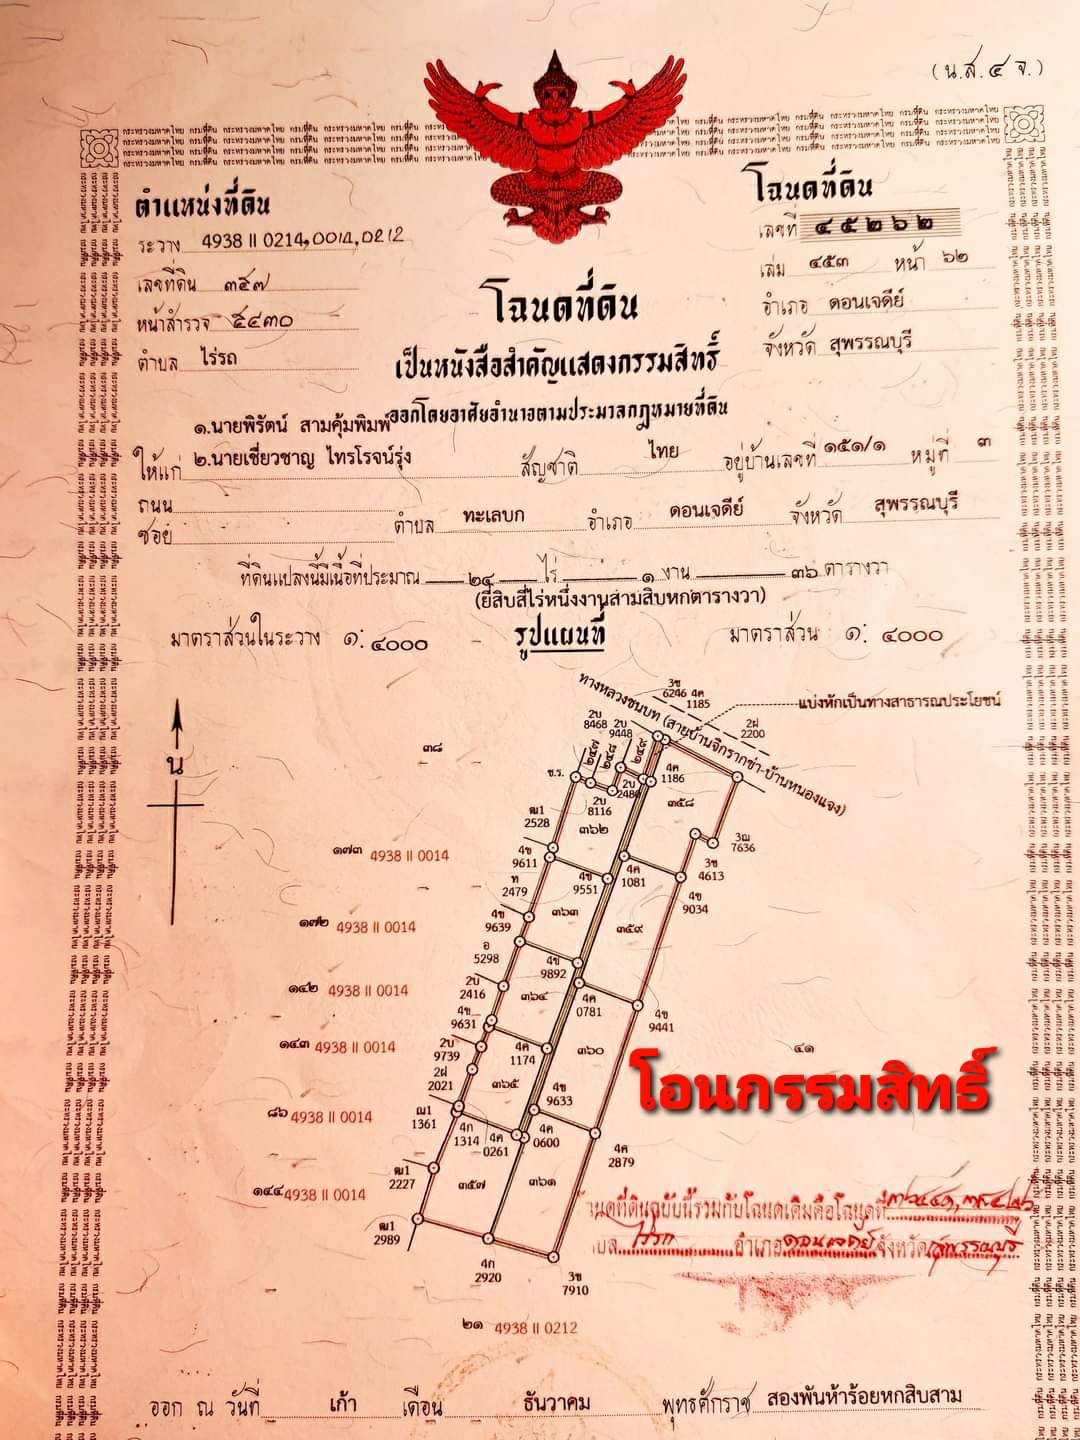 (น.ส.๔ จ.)
ตำแหน่งที่ดิน
ระวาง 4938 II 0214,0014,0212
เลขที่ดิน ๓๕๗
หน้าสำรวจ ๕๔๓๐
ตำบล ไร่รถ
โฉนดที่ดิน
เลขที่ ๔๕๒๖๒
เล่ม ๔๕๓ หน้า ๖๒
อำเภอ ดอนเจดีย์
จังหวัด สุพรรณบุรี
โฉนดที่ดิน
เป็นหนังสือสำคัญแสดงกรรมสิทธิ์
ออกโดยอาศัยอำนาจตามประมวลกฎหมายที่ดิน
๑.นายพิรัตน์ สามคุ้มพิมพ์
ให้แก่ ๒.นายเชี่ยวชาญ ไทรโรจน์รุ่ง สัญชาติ ไทย อยู่บ้านเลขที่ ๑๕๑/๑ หมู่ที่ ๓
ถนน
ซอย ตำบล ทะเลบก อำเภอ ดอนเจดีย์ จังหวัด สุพรรณบุรี
ที่ดินแปลงนี้มีเนื้อที่ประมาณ ๒๔ ไร่ ๑ งาน ๓๖ ตารางวา
(ยี่สิบสี่ไร่หนึ่งงานสามสิบหกตารางวา)
มาตราส่วนในระวาง ๑: ๔๐๐๐ รูปแผนที่ มาตราส่วน ๑: ๔๐๐๐
ทางหลวงชนบท (สายบ้านจิกรากข่า-บ้านหนองแจง)
3ข 6246
4ค 1185
แบ่งหักเป็นทางสาธารณประโยชน์
2ฝ 2200
2บ 8468
2บ 9448
๒๔๗
๒๔๘
๒๔๙
น
๓๘
ช.ร.
2บ 2480
4ค 1186
๓๕๘
2บ 8116
ฒ1 2528
๓๖๒
3ฌ 7636
๑๗๓ 4938 II 0014
4ข 9611
4ข 9551
4ค 1081
3ข 4613
ท 2479
4ข 9034
๑๗๒ 4938 II 0014
4ข 9639
๓๖๓
๓๕๙
อ 5298
4ข 9892
๑๔๒ 4938 II 0014
2บ 2416
๓๖๔
4ค 0781
4ข 9631
4ข 9441
๑๔๓ 4938 II 0014
2บ 9739
4ค 1174
๓๖๐
๔๑
2ฝ 2021
๓๖๕
4ข 9633
โอนกรรมสิทธิ์
๘๖ 4938 II 0014
ฌ1 1361
4ก 1314
4ค 0261
4ค 0600
4ค 2879
๑๔๔ 4938 II 0014
ฒ1 2227
๓๕๗
๓๖๑
ฒ1 2989
4ก 2920
3ข 7910
นดที่ดินฉบับนี้รวมกับโฉนดเดิมคือโฉนดที่
บล ไร่รถ อำเภอ ดอนเจดีย์ จังหวัด สุพรรณบุรี
๒๑ 4938 II 0212
ออก ณ วันที่ เก้า เดือน ธันวาคม พุทธศักราช สองพันห้าร้อยหกสิบสาม